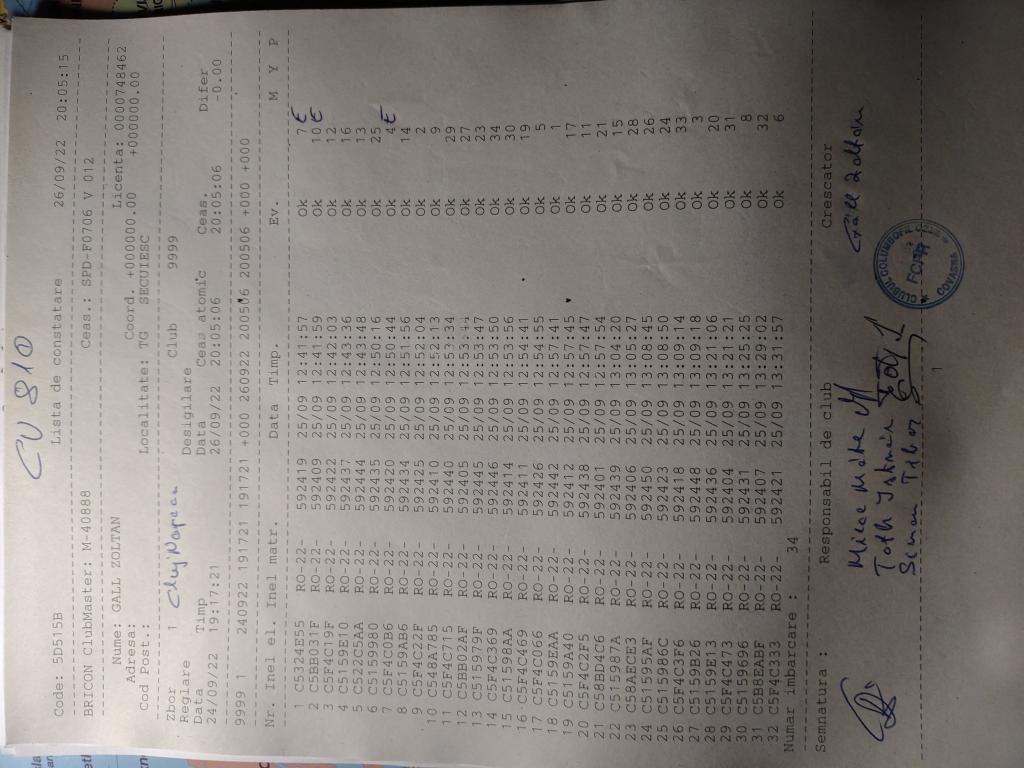 CU 810
Code: 5D515B Lista de constatare 26/09/22 20:05:15
BRICON ClubMaster: M-40888 Ceas.: SPD-F0706 V 012
Nume: GALL ZOLTAN Licenta: 0000748462
Adresa: Coord. +000000.00 +000000.00
Cod Post.: Localitate: TG SECUIESC
Zbor 1 Cluj Napoca Club 9999
Reglare Desigilare
Data Timp Data Ceas atomic Ceas. Difer
24/09/22 19:17:21 26/09/22 20:05:06 20:05:06 -0.00
9999 1 240922 191721 191721 +000 260922 200506 200506 +000 +000
Nr. Inel el. Inel matr. Data Timp. Ev. M Y P
1 C5324E55 RO-22- 592419 25/09 12:41:57 Ok 7 €
2 C5BB031F RO-22- 592409 25/09 12:41:59 Ok 10 €
3 C5F4C19F RO-22- 592422 25/09 12:42:03 Ok 12
4 C5159E10 RO-22- 592437 25/09 12:43:36 Ok 16
5 C522C5AA RO-22- 592444 25/09 12:43:48 Ok 13
6 C5159980 RO-22- 592435 25/09 12:50:16 Ok 25
7 C5F4C0B6 RO-22- 592420 25/09 12:50:44 Ok 4 €
8 C5159AB6 RO-22- 592434 25/09 12:51:56 Ok 14
9 C5F4C22F RO-22- 592425 25/09 12:52:04 Ok 2
10 C548A785 RO-22- 592410 25/09 12:52:13 Ok 9
11 C5F4C715 RO-22- 592440 25/09 Ok 29
12 C5BB02AF RO-22- 592405 25/09 12:53:44 Ok 27
13 C515979F RO-22- 592445 25/09 12:53:47 Ok 23
14 C5F4C369 RO-22- 592446 25/09 12:53:50 Ok 34
15 C51598AA RO-22- 592414 25/09 12:53:56 Ok 30
16 C5F4C469 RO-22- 592411 25/09 12:54:41 Ok 19
17 C5F4C066 RO-22- 592426 25/09 12:54:55 Ok 5
18 C5159EAA RO-22- 592442 25/09 12:57:41 Ok 1
19 C5159A40 RO-22- 592412 25/09 12:57:45 Ok 17
20 C5F4C2F5 RO-22- 592438 25/09 12:57:47 Ok 11
21 C58BD4C6 RO-22- 592401 25/09 12:57:54 Ok 21
22 C515987A RO-22- 592439 25/09 13:04:20 Ok 15
23 C58AECE3 RO-22- 592406 25/09 13:05:27 Ok 28
24 C51595AF RO-22- 25/09 13:08:45 Ok 26
25 C515986C RO-22- 592423 25/09 13:08:50 Ok 24
26 C5F4C3F6 RO-22- 592418 25/09 13:09:14 Ok 33
27 C5159B26 RO-22- 592448 25/09 13:09:18 Ok 3
28 C5159E13 RO-22- 592436 25/09 13:21:06 Ok 20
29 C5F4C473 RO-22- 592404 25/09 13:21:21 Ok 31
30 C5159696 RO-22- 592431 25/09 13:25:25 Ok 8
31 C5B8EABF RO-22- 592407 25/09 13:29:02 Ok 32
32 C5F4C333 RO-22- 592421 25/09 13:31:57 Ok 6
Numar imbarcare : 34
Semnatura : Responsabil de club Crescator
Máté Gáll Zoltan
Toth Istvan
Seman Tibor
CLUBUL COLUMBOFIL FCMR COVASNA
1